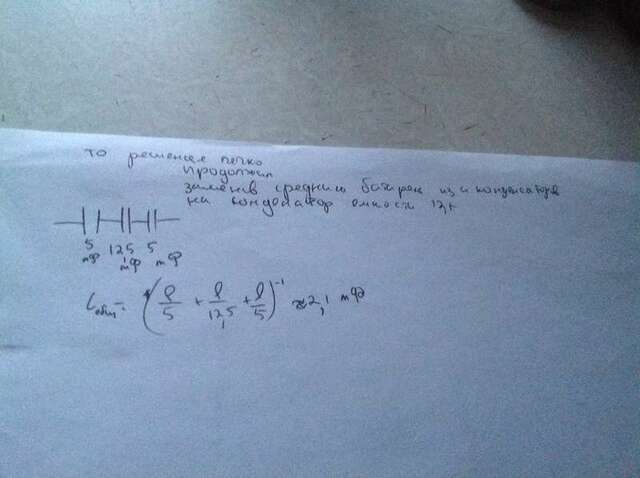 то решение легко
продолжил
заменив среднюю батарею из конденсаторов
на конденсатор емкости 12,
5 12,5 5
mф mф mф
Cобщ = (1/5 + 1/12,5 + 1/5)⁻¹ ≈ 2,1 mф